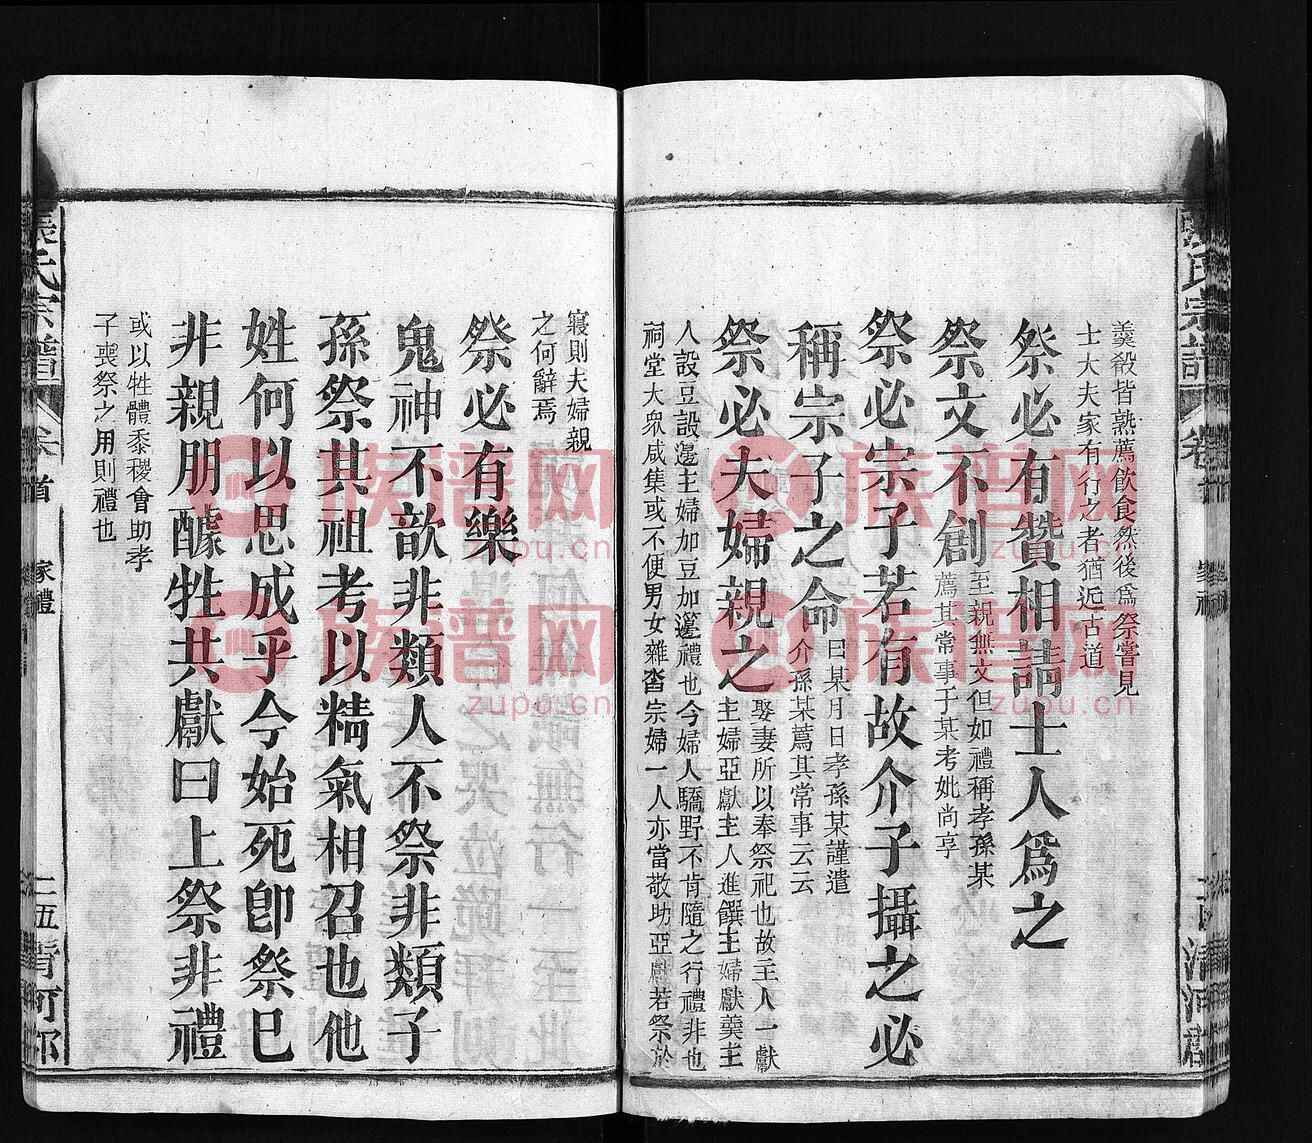 羹殽皆熟薦飲食然後爲祭嘗見
士大夫家有行之者猶近古道
祭必有贊相請士人爲之
祭文不創至親無文但如禮稱孝孫某
薦其常事于某考妣尚享
祭必宗子若有故介子攝之必
稱宗子之命曰某月日孝孫某謹遣
介孫某薦其常事云云
祭必夫婦親之娶妻所以奉祭祀也故主人一獻
主婦亞獻主人進饌主婦獻羹主
人設豆設籩主婦加豆加籩禮也今婦人驕野不肯隨之行禮非也
祠堂大衆咸集或不便男女雜沓宗婦一人亦當敬助亞獻若祭於
寢則夫婦親
之何辭焉
祭必有樂
鬼神不歆非類人不祭非類子
孫祭其祖考以精氣相召也他
姓何以思成乎今始死卽祭巳
非親朋醵牲共獻曰上祭非禮
或以牲醴黍稷會助孝
子喪祭之用則禮也
張氏宗譜
卷首
家禮
二五
清河郡
族譜网
zupu.cn
族譜网
zupu.cn
族譜网
zupu.cn
族譜网
zupu.cn